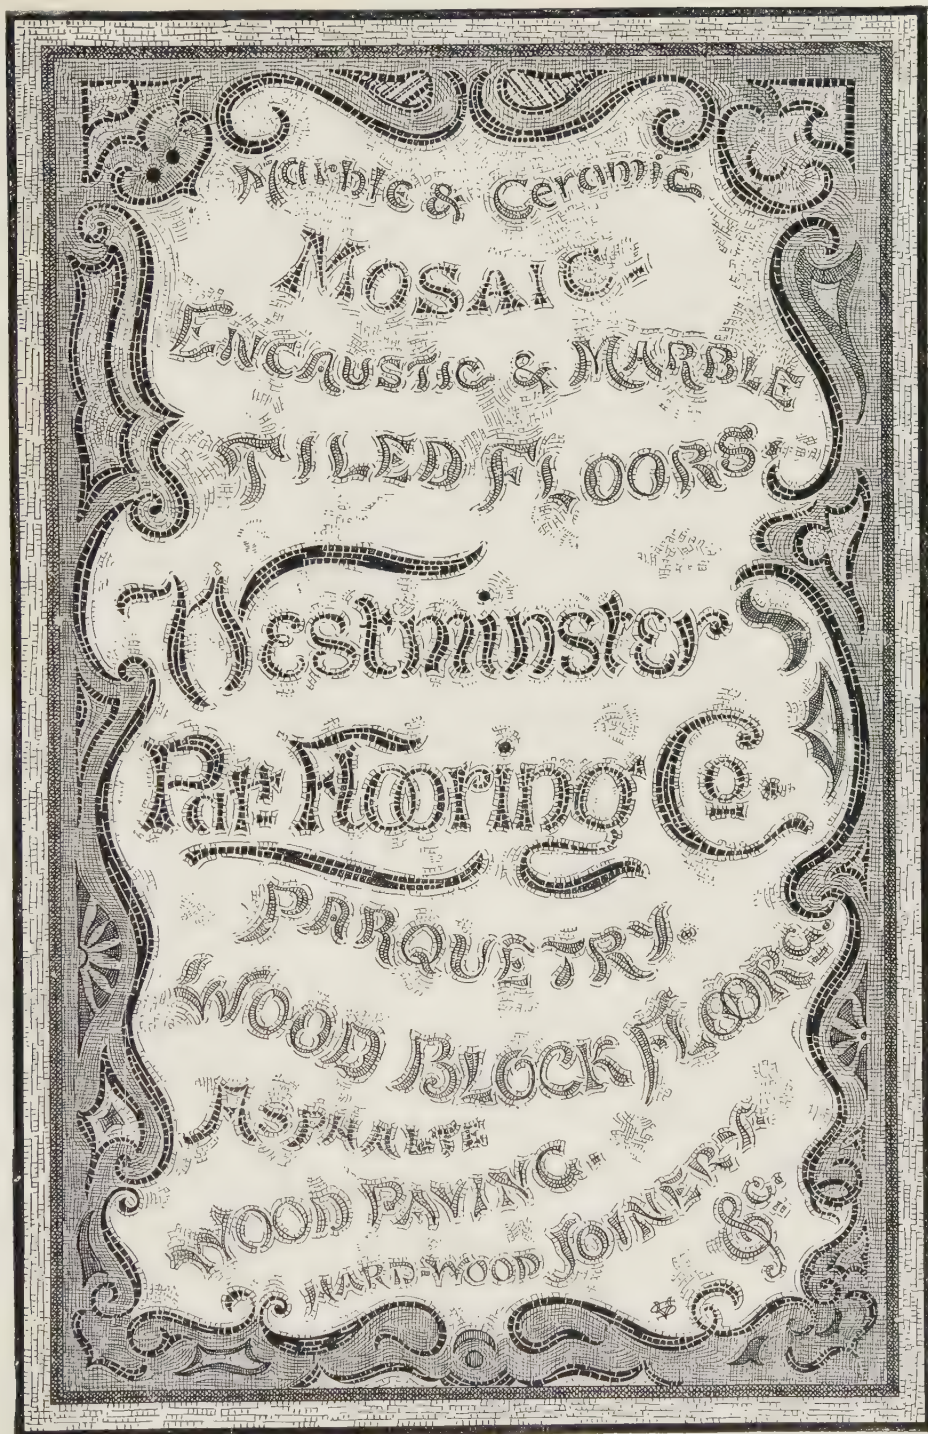 Marble & Ceramic
MOSAIC
ENCAUSTIC & MARBLE
TILED FLOORS
Westminster
Pat. Flooring Co.
PARQUETRY.
WOOD BLOCK FLOORG.
ASPHALTE
WOOD PAVING.
HARD-WOOD JOINERY.
&c.